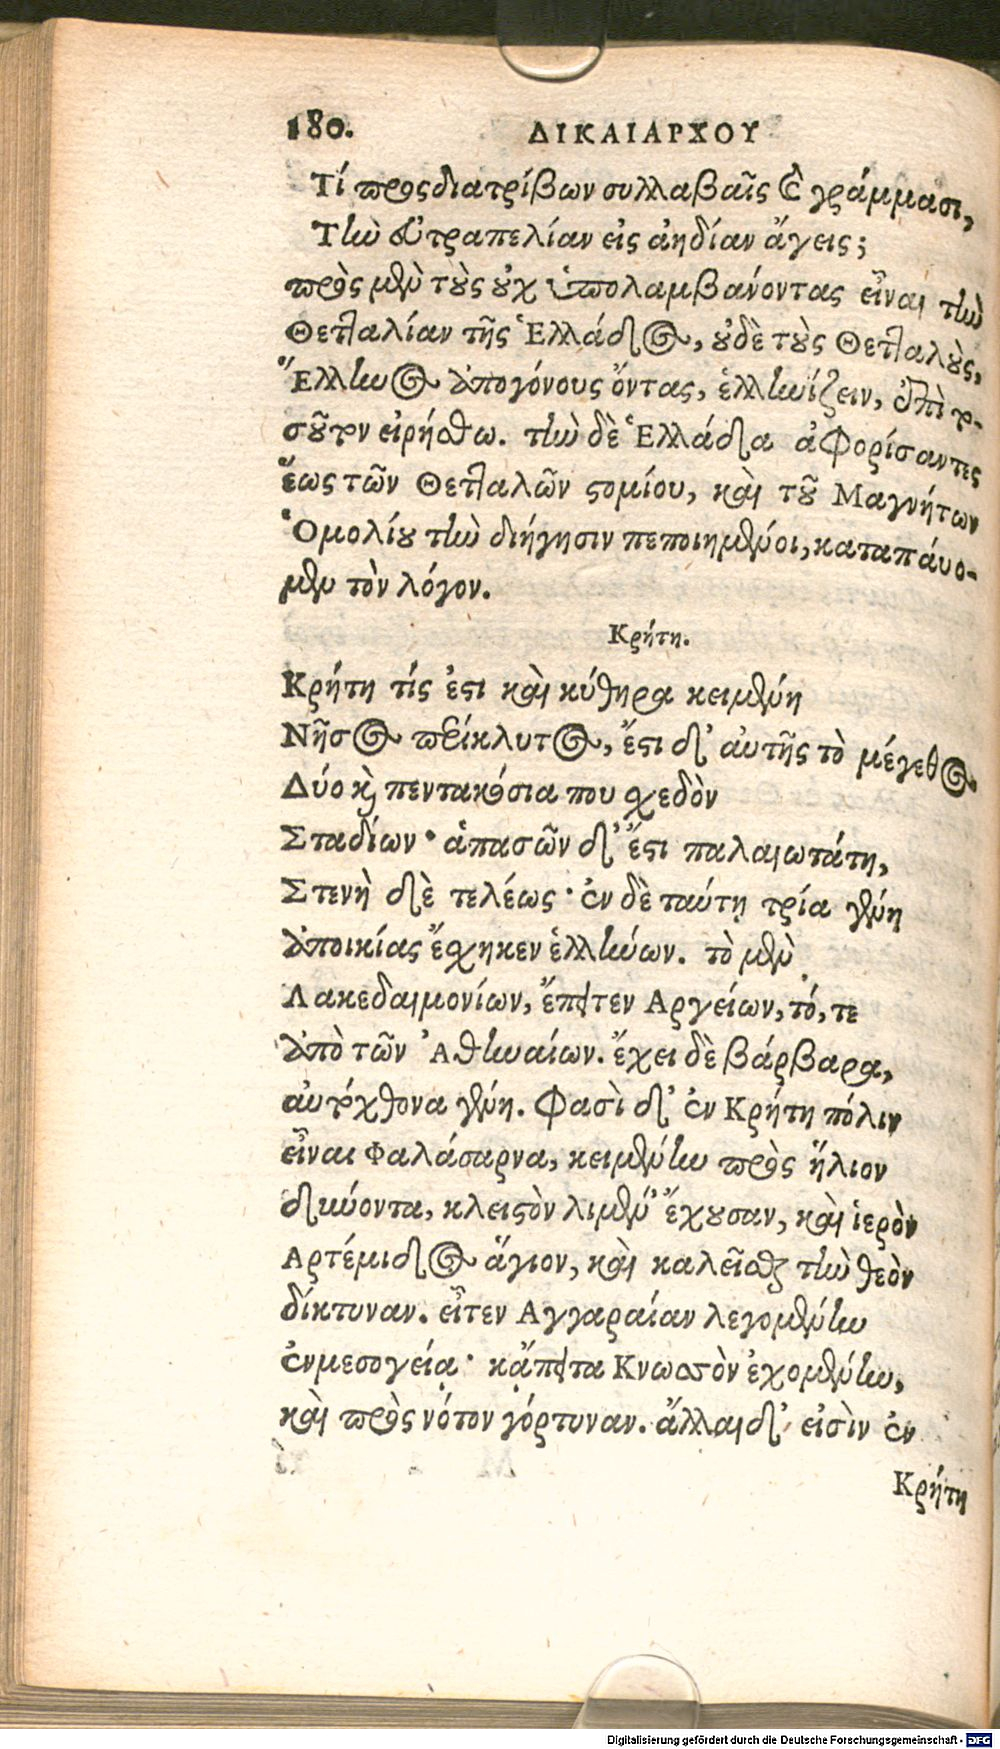 180. ΔΙΚΑΙΑΡΧΟΥ
Τί προςδιατρίβων συλλαβαῖς καὶ γράμμασι,
Τὴν εὐτραπελίαν εἰς ἀηδίαν ἄγεις;
πρὸς μὲν τοὺς οὐχ ὑπολαμβάνοντας εἶναι τὴν
Θετταλίαν τῆς Ἑλλάδος, οὐδὲ τοὺς Θετταλοὺς,
Ἕλληνος ἀπογόνους ὄντας, ἑλληνίζειν, ἐπὶ το-
σοῦτον εἰρήσθω. τὴν δὲ Ἑλλάδα ἀφορίσαντες
ἕως τῶν Θετταλῶν στομίου, καὶ τοῦ Μαγνήτων
Ὁμολίου τὴν διήγησιν πεποιημένοι, καταπάυο-
μεν τὸν λόγον.
Κρήτη.
Κρήτη τίς ἐστι καὶ κύθηρα κειμένη
Νῆσος περίκλυτος, ἔστι δ' αὐτῆς τὸ μέγεθος
Δύο καὶ πεντακόσια που σχεδὸν
Σταδίων· ἁπασῶν δ' ἔστι παλαιωτάτη,
Στενὴ δὲ τελέως· ἐν δὲ ταύτῃ τρία γένη
ἀποικίας ἔσχηκεν ἑλλήνων. τὸ μὲν
Λακεδαιμονίων, ἔπειτεν Αργείων, τό, τε
ἀπὸ τῶν Ἀθηναίων. ἔχει δὲ βάρβαρα,
αὐτόχθονα γένη. φασὶ δ' ἐν Κρήτη πόλιν
εἶναι Φαλάσαρνα, κειμένην πρὸς ἥλιον
δύνοντα, κλειστὸν λιμέν' ἔχουσαν, καὶ ἱερὸν
Αρτέμιδος ἅγιον, καὶ καλεῖσθαι τὴν θεὸν
δίκτυναν. εἶτεν Αγγαραίαν λεγομένην
ἐνμεσογείᾳ· κᾄπειτα Κνωσσὸν ἐχομένην,
καὶ πρὸς νότον γόρτυναν. ἄλλαι δ' εἰσὶν ἐν
Κρήτη
Digitalisierung gefördert durch die Deutsche Forschungsgemeinschaft - DFG